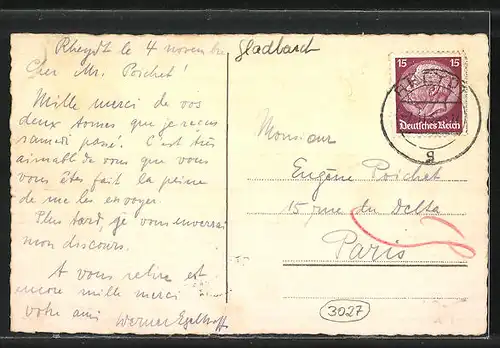 Rheydt le 4 novembre
Cher Mr. Poichet!
Mille merci de vos
deux tomes que je recus
samedi passé. C'est très
aimable de vous que vous
vous êtes fait la peine
de me les envoyer.
Plus tard, je vous enverrai
mon discours.
A vous relire et
encore mille merci
votre ami Werner Egelhoff
Gladbach
15 15
Deutsches Reich
g
Monsieur
Eugène Poichet
15 rue du Delta
Paris
3027